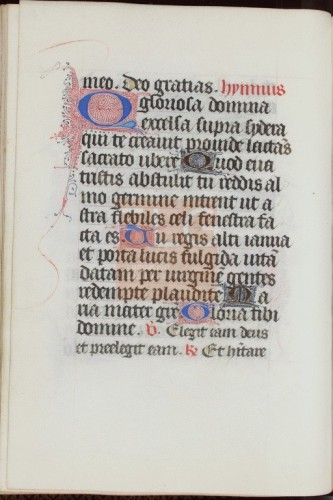 meo. Deo gratias. hymnus
O gloriosa domina
excelsa supra sydera
qui te creavit provide lactas
sacrato ubere Quod eva
tristis abstulit tu reddis al
mo germine intrent ut a
stra flebiles celi fenestra fa
cta es Tu regis alti ianua
et porta lucis fulgida vitā
datam per virginē gentes
redempte plaudite Ma
ria mater gr̄e Gloria tibi
domine. ℣. Elegit eam deus
et preelegit eam. ℟. Et hītare